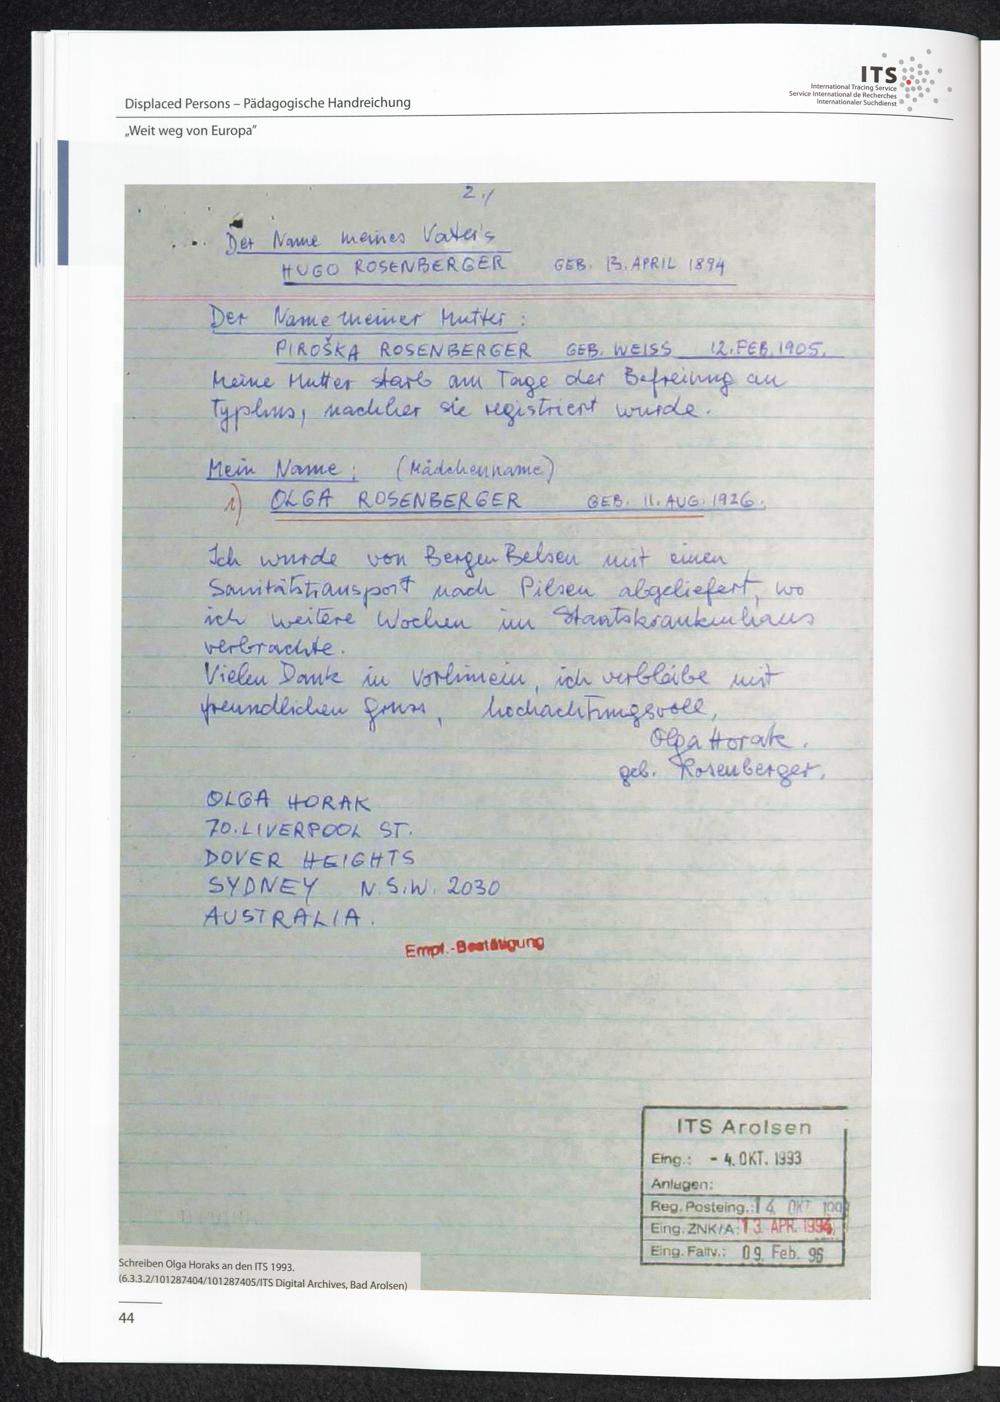 Displaced Persons – Pädagogische Handreichung
ITS
International Tracing Service
Service International de Recherches
Internationaler Suchdienst
„Weit weg von Europa“
2./
Der Name meines Vater's
HUGO ROSENBERGER GEB. 13. APRIL 1894
Der Name meiner Mutter:
PIROŠKA ROSENBERGER GEB. WEISS 12. FEB. 1905.
Meine Mutter starb am Tage der Befreiung an
Typhus, nachher sie registriert wurde.
Mein Name: (Mädchenname)
1) OLGA ROSENBERGER GEB. 11. AUG. 1926.
Ich wurde von Bergen Belsen mit einen
Sanitätstransport nach Pilsen abgeliefert, wo
ich weitere Wochen im Staatskrankenhaus
verbrachte.
Vielen Dank in vorhinein, ich verbleibe mit
freundlichen Gruss, hochachtungsvoll,
Olga Horak.
geb. Rosenberger.
OLGA HORAK
70. LIVERPOOL ST.
DOVER HEIGHTS
SYDNEY N.S.W. 2030
AUSTRALIA.
Empf.-Bestätigung
ITS Arolsen
Eing.: - 4. OKT. 1993
Anlagen:
Reg. Posteing.: 14. OKT. 199
Eing. ZNK/A: 13. APR. 1994
Eing. Fallv.: 09. Feb. 96
Schreiben Olga Horaks an den ITS 1993.
(6.3.3.2/101287404/101287405/ITS Digital Archives, Bad Arolsen)
44